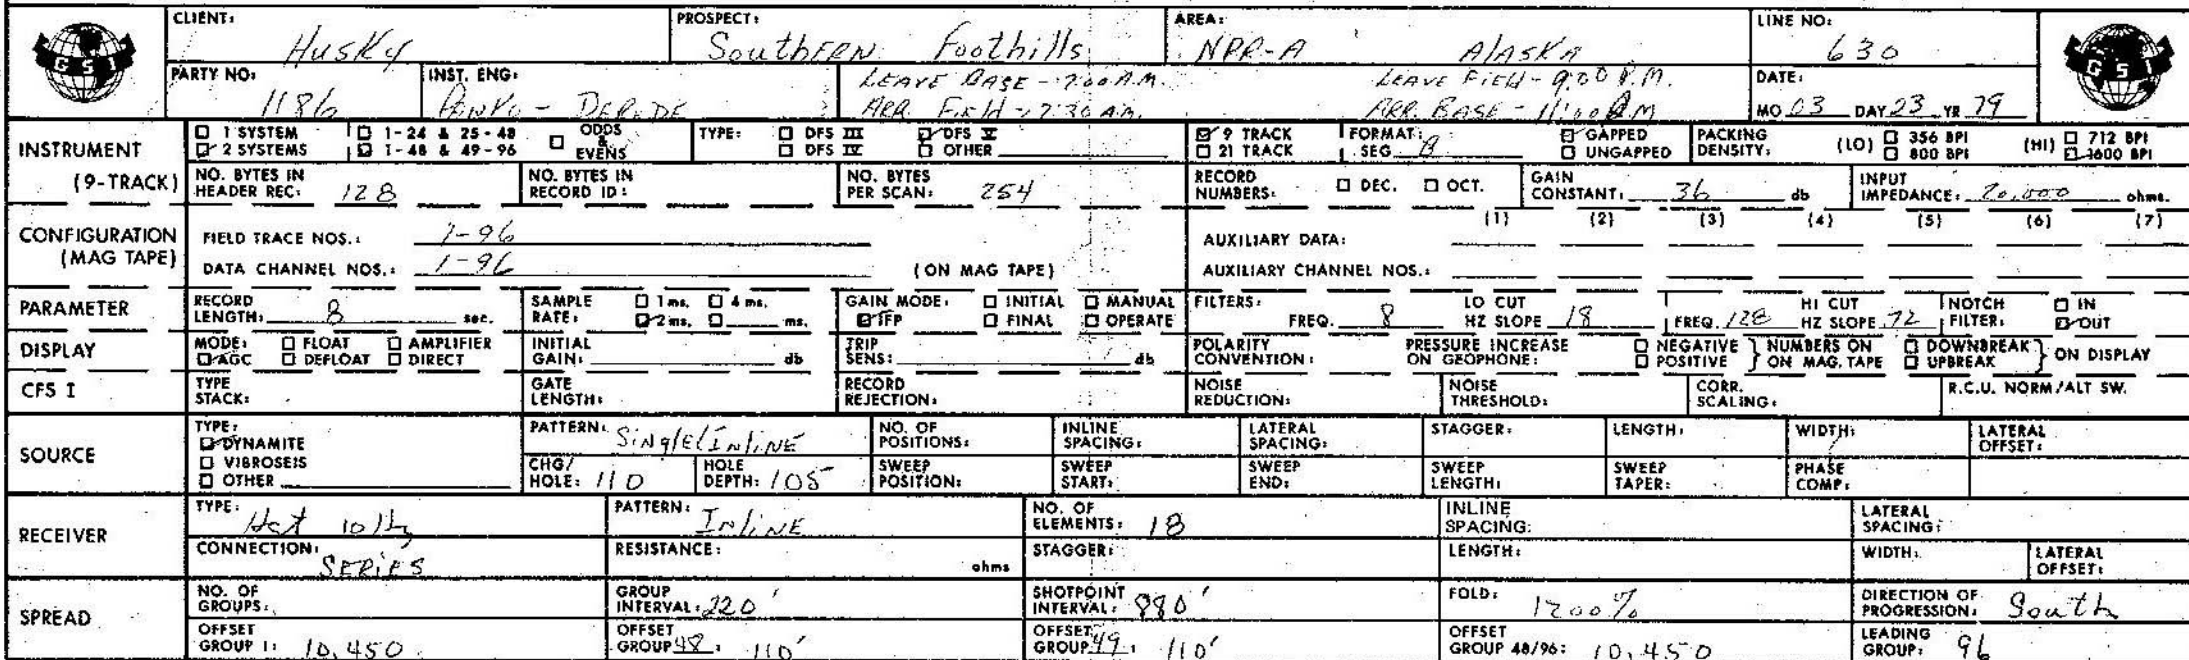 CLIENT: Husky PROSPECT: Southern Foothills AREA: NPR-A Alaska LINE NO: 630
GSI GSI
PARTY NO: 1186 INST. ENG: LEAVE BASE - 7:00 A.M. LEAVE FIELD - 9:00 P.M. DATE:
ARR. FIELD - 7:30 A.M. ARR. BASE - 11:00 MO 03 DAY 23 YR 79
INSTRUMENT (9-TRACK)
1 SYSTEM 1-24 & 25-48 ODDS & EVENS TYPE: DFS III DFS V 9 TRACK FORMAT: GAPPED PACKING (LO) 356 BPI (HI) 712 BPI
2 SYSTEMS 1-48 & 49-96 DFS IV OTHER 21 TRACK SEG B UNGAPPED DENSITY: 800 BPI 1600 BPI
NO. BYTES IN HEADER REC: 128 NO. BYTES IN RECORD ID: NO. BYTES PER SCAN: 254 RECORD NUMBERS: DEC. OCT. GAIN CONSTANT: 36 db INPUT IMPEDANCE: 20,000 ohms.
CONFIGURATION (MAG TAPE)
(1) (2) (3) (4) (5) (6) (7)
FIELD TRACE NOS.: 1-96 AUXILIARY DATA:
DATA CHANNEL NOS.: 1-96 (ON MAG TAPE) AUXILIARY CHANNEL NOS.:
PARAMETER RECORD LENGTH: 8 sec. SAMPLE RATE: 1 ms. 4 ms. 2 ms. ms. GAIN MODE: INITIAL MANUAL IFP FINAL OPERATE FILTERS: FREQ. 8 LO CUT HZ SLOPE 18 FREQ. 128 HI CUT HZ SLOPE 72 NOTCH FILTER: IN OUT
DISPLAY MODE: FLOAT AMPLIFIER AGC DEFLOAT DIRECT INITIAL GAIN: db TRIP SENS: db POLARITY CONVENTION: PRESSURE INCREASE ON GEOPHONE: NEGATIVE POSITIVE } NUMBERS ON ON MAG. TAPE DOWNBREAK UPBREAK } ON DISPLAY
CFS I TYPE STACK: GATE LENGTH: RECORD REJECTION: NOISE REDUCTION: NOISE THRESHOLD: CORR. SCALING: R.C.U. NORM/ALT SW.
SOURCE
TYPE: DYNAMITE VIBROSEIS OTHER PATTERN: Single Inline NO. OF POSITIONS: INLINE SPACING: LATERAL SPACING: STAGGER: LENGTH: WIDTH: LATERAL OFFSET:
CHG/HOLE: 110 HOLE DEPTH: 105 SWEEP POSITION: SWEEP START: SWEEP END: SWEEP LENGTH: SWEEP TAPER: PHASE COMP:
RECEIVER
TYPE: PATTERN: Inline NO. OF ELEMENTS: 18 INLINE SPACING: LATERAL SPACING:
CONNECTION: SERIES RESISTANCE: ohms STAGGER: LENGTH: WIDTH: LATERAL OFFSET:
SPREAD
NO. OF GROUPS: GROUP INTERVAL: 220' SHOTPOINT INTERVAL: 880' FOLD: 1200% DIRECTION OF PROGRESSION: South
OFFSET GROUP 1: 10,450 OFFSET GROUP 48: 110' OFFSET GROUP 49: 110' OFFSET GROUP 48/96: 10,450 LEADING GROUP: 96